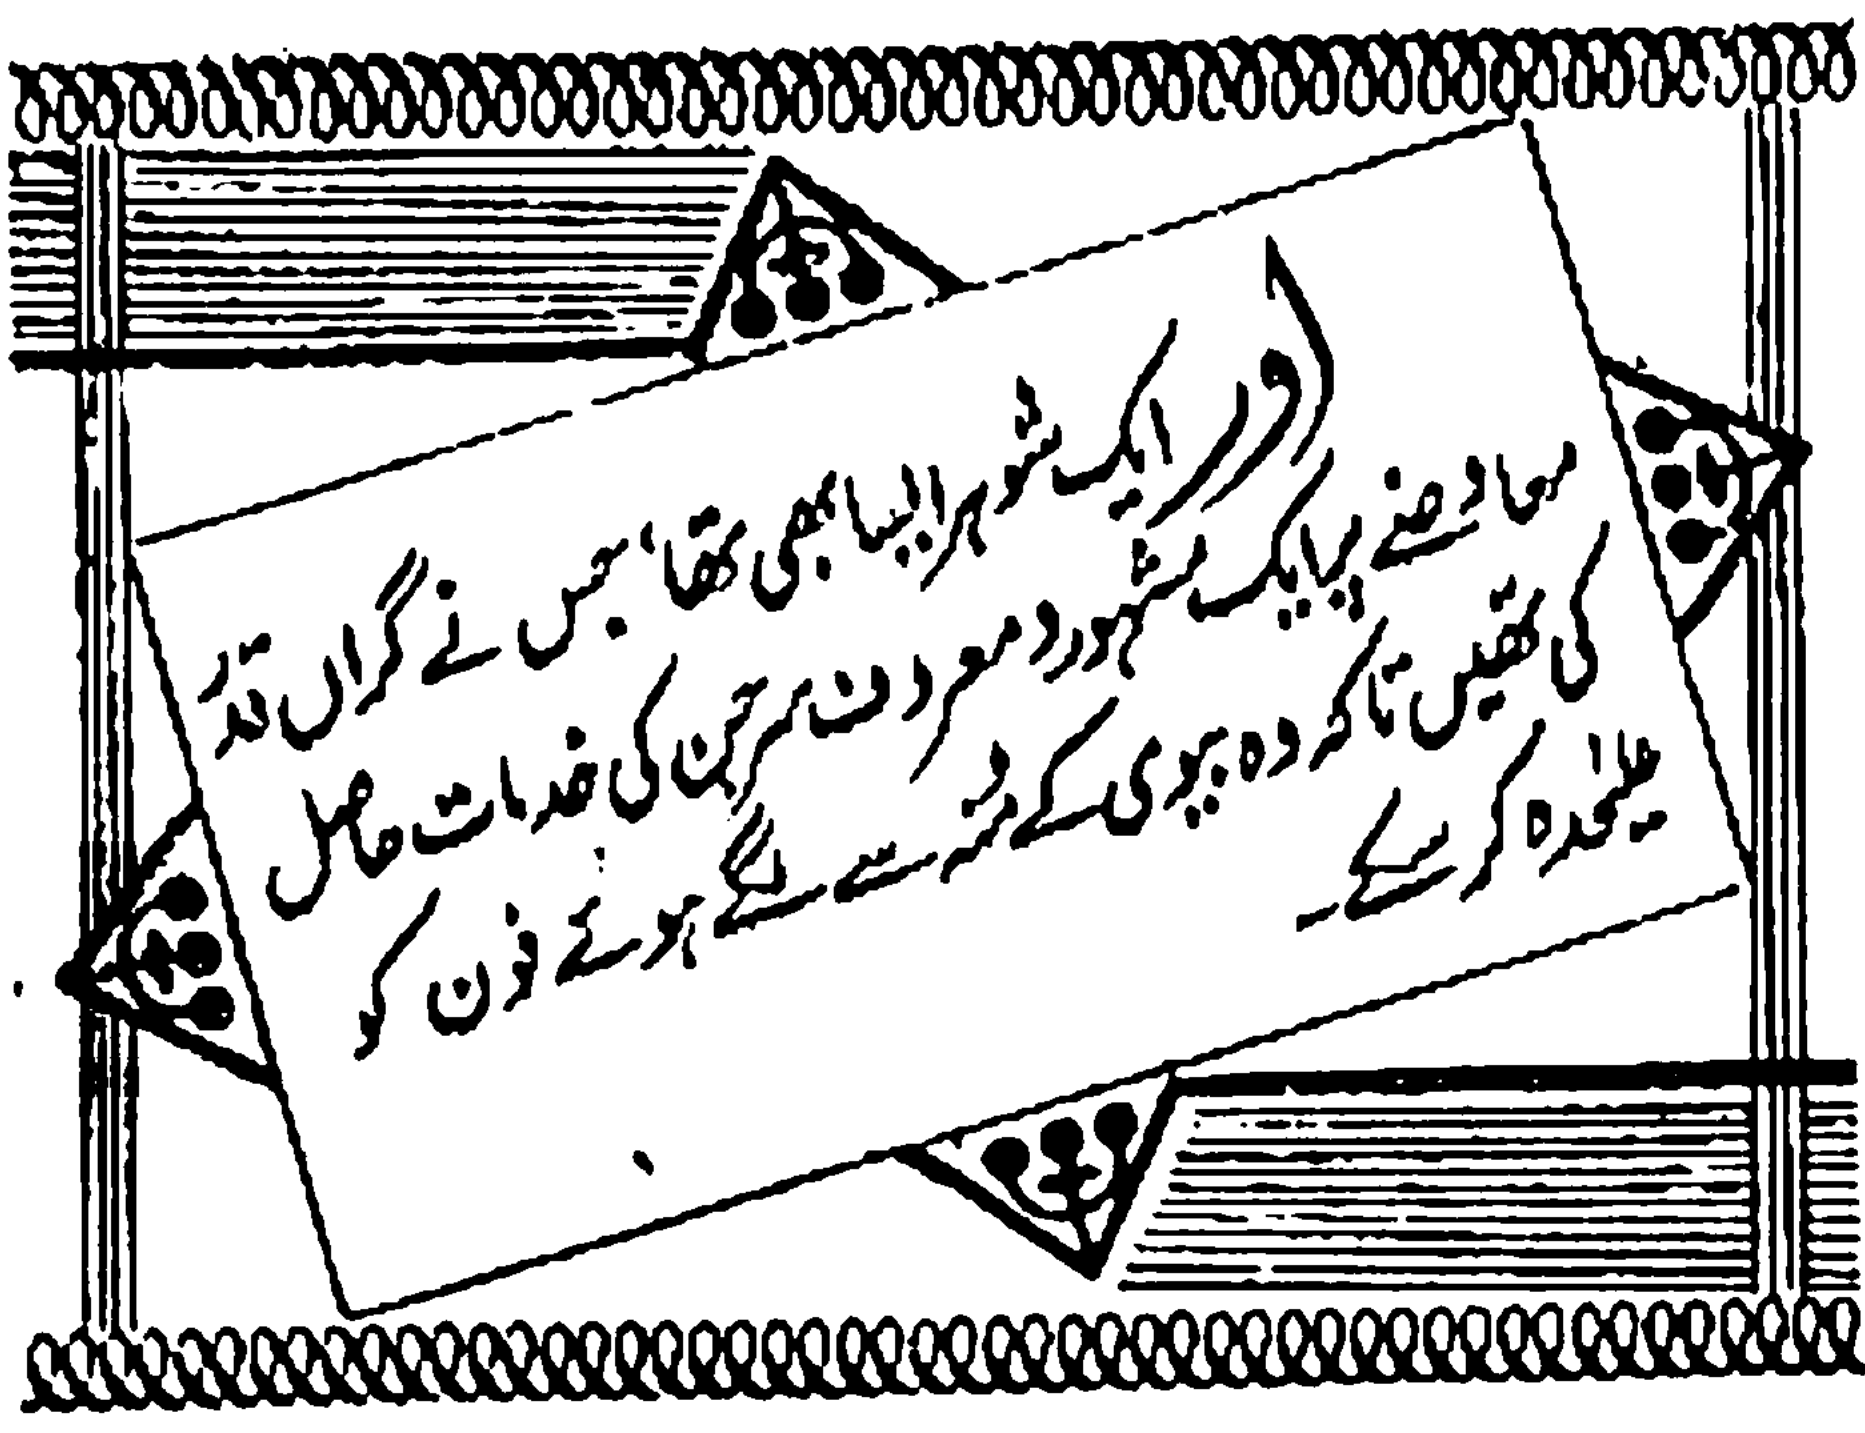 اور ایک شوہر ایسا بھی تھا، جس نے گراں قدر
معاوضے پر ایک مشہور و معروف سرجن کی خدمات حاصل
کی تھیں تاکہ وہ بیوی کے ذریعے لگے ہوئے فون کو
علیٰحدہ کر سکے۔